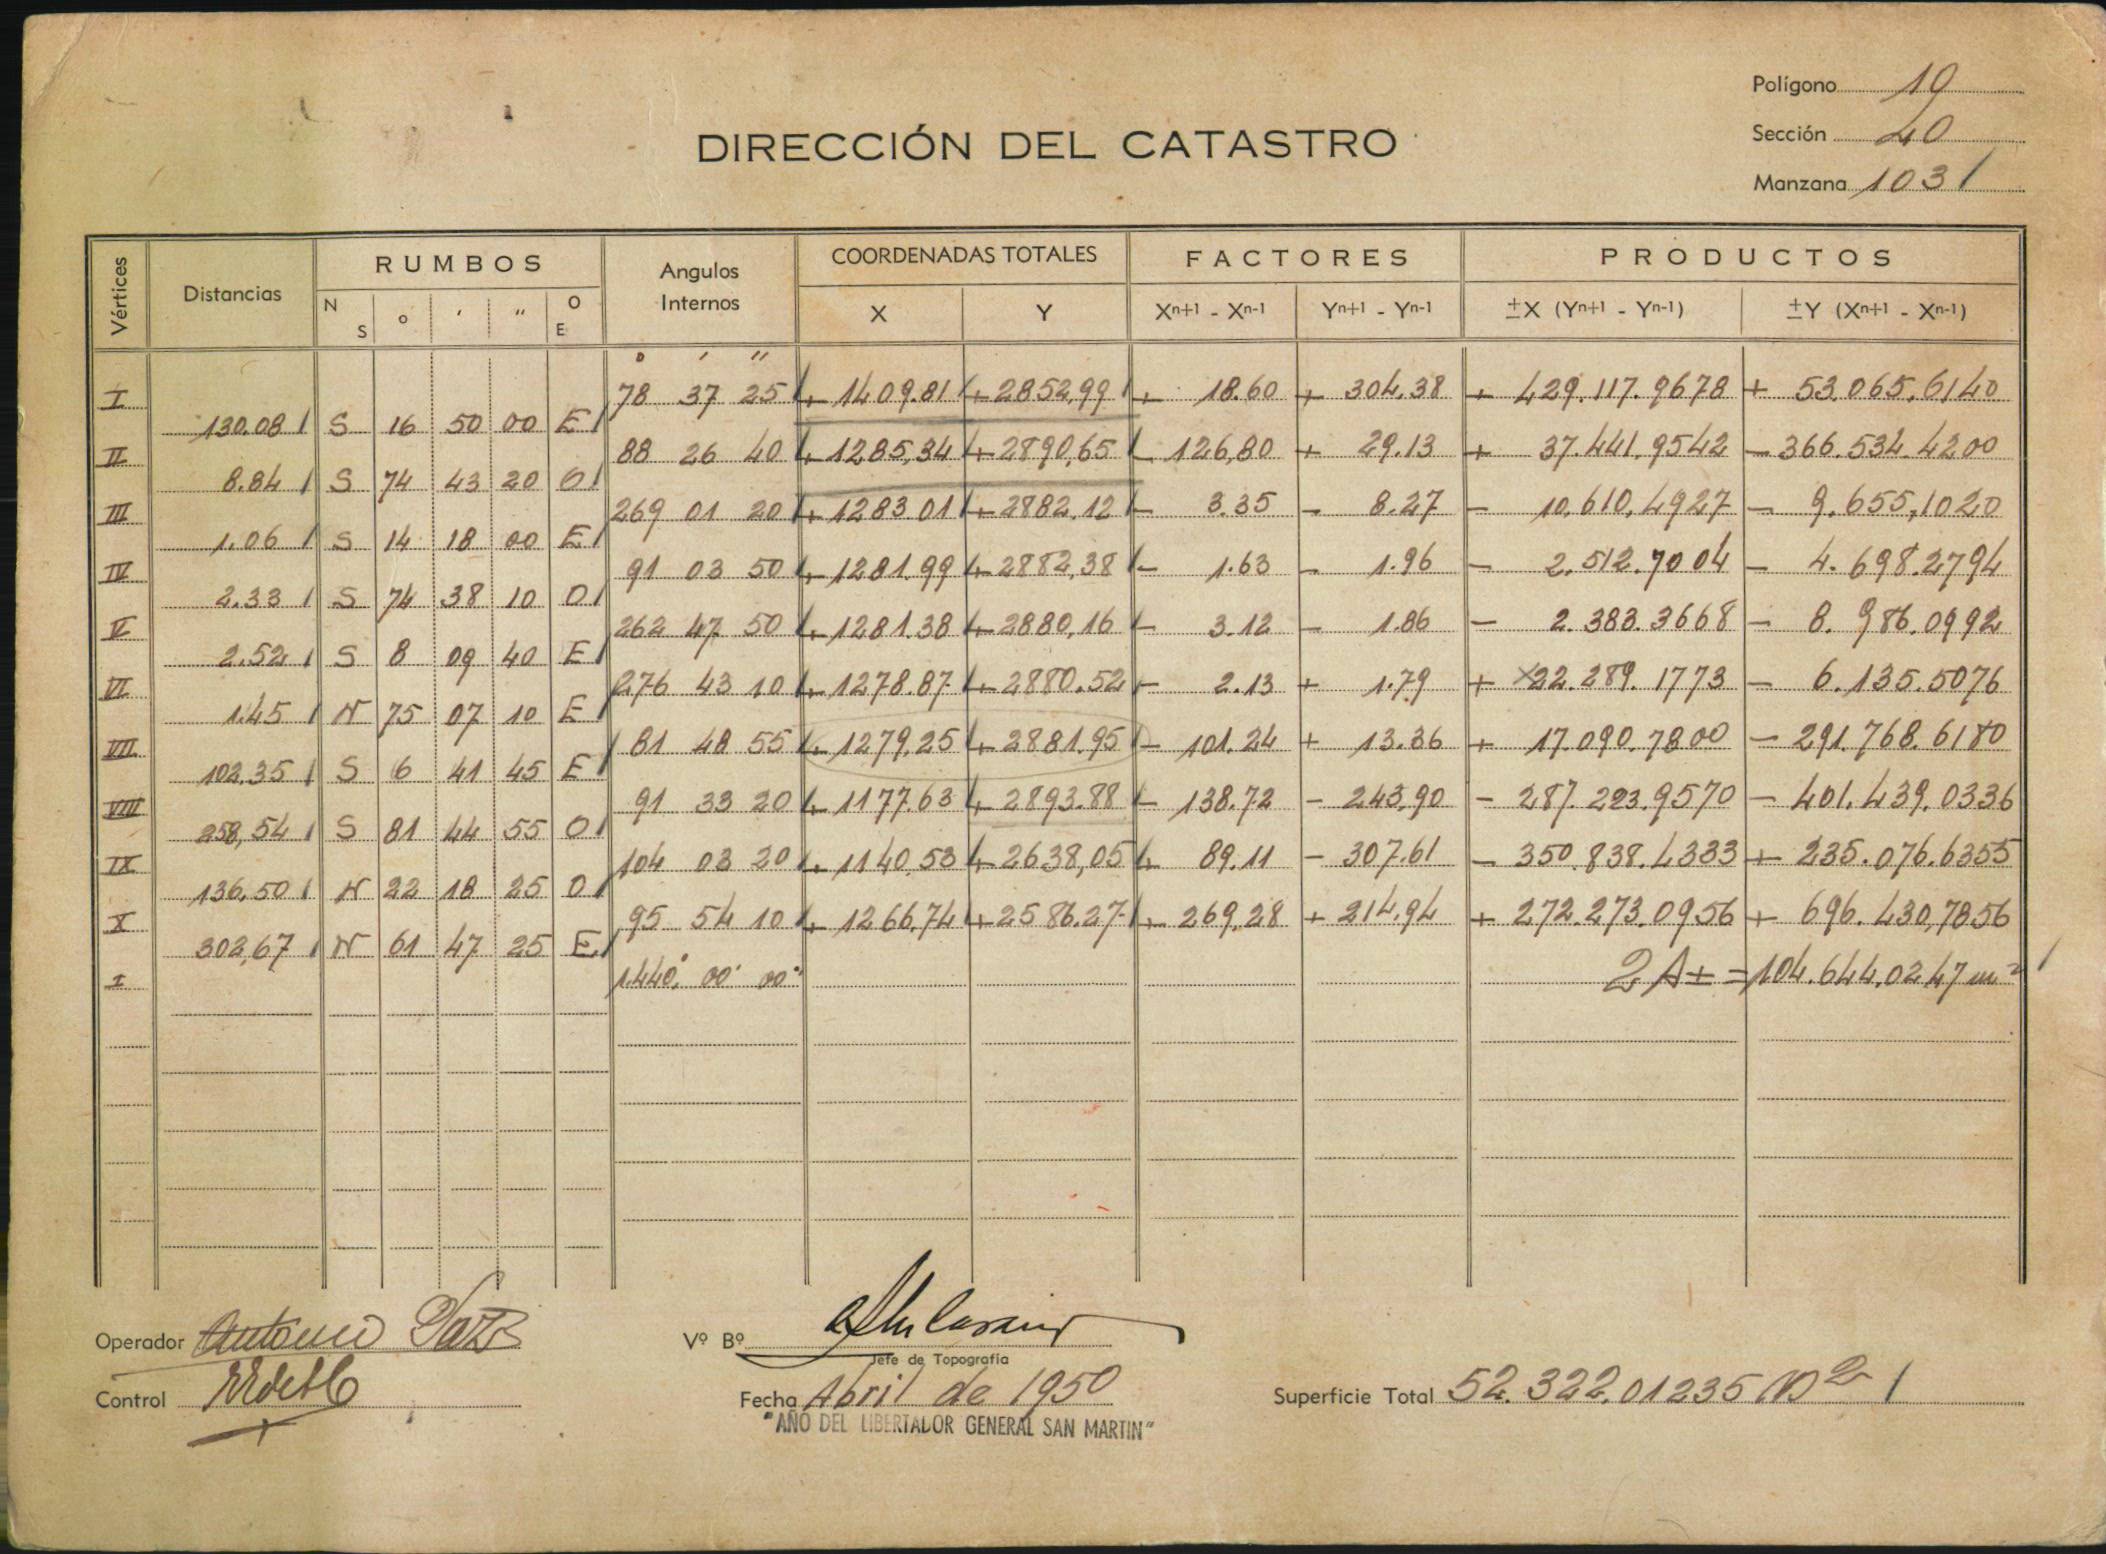 Polígono 19
Sección 40
Manzana 103
DIRECCIÓN DEL CATASTRO
Vértices Distancias RUMBOS Angulos Internos COORDENADAS TOTALES FACTORES PRODUCTOS
N S ° ′ ″ O E X Y Xn+1 - Xn-1 Yn+1 - Yn-1 ±X (Yn+1 - Yn-1) ±Y (Xn+1 - Xn-1)
° ′ ″
I 78 37 25 + 1409.81 + 2852,99 + 18.60 + 304,38 + 429.117.9678 + 53.065,6140
130.08 S 16 50 00 E
II 88 26 40 + 1285,34 + 2890,65 - 126,80 + 29.13 + 37.441.9542 - 366.534.4200
8.84 S 74 43 20 O
III 269 01 20 + 1283.01 + 2882,12 - 3.35 - 8.27 - 10.610,4927 - 9.655,1020
1.06 S 14 18 00 E
IV 91 03 50 + 1281.99 + 2882,38 - 1.63 - 1.96 - 2.512.7004 - 4.698.2794
2.33 S 74 38 10 O
V 262 47 50 + 1281.38 + 2880,16 - 3.12 - 1.86 - 2.383.3668 - 8.986.0992
2.52 S 8 09 40 E
VI 276 43 10 + 1278.87 + 2880.52 - 2.13 + 1.79 + x22.289.1773 - 6.135.5076
1.45 N 75 07 10 E
VII 81 48 55 + 1279,25 + 2881.95 - 101.24 + 13.36 + 17.090.7800 - 291.768.6180
102.35 S 6 41 45 E
VIII 91 33 20 + 1177.63 + 2893.88 - 138.72 - 243,90 - 287.223.9570 - 401.439.0336
258,54 S 81 44 55 O
IX 104 03 20 + 1140,53 + 2638,05 + 89.11 - 307.61 - 350.838.4333 + 235.076.6355
136,50 N 22 18 25 O
X 95 54 10 + 1266,74 + 2586.27 + 269,28 + 214,94 + 272.273.0956 + 696.430,7856
302,67 N 61 47 25 E
I 1.440° 00′ 00″ 2A± = 104.644.0247 m²
Operador Antonio Paz
Vº Bº
Jefe de Topografía
Control
Fecha Abril de 1950
Superficie Total 52.322.01235 m2
"AÑO DEL LIBERTADOR GENERAL SAN MARTIN"